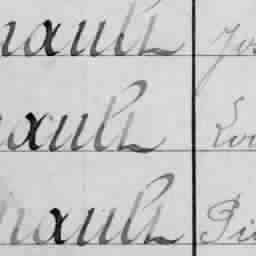 nault Jos
nault Lou
nault Pi